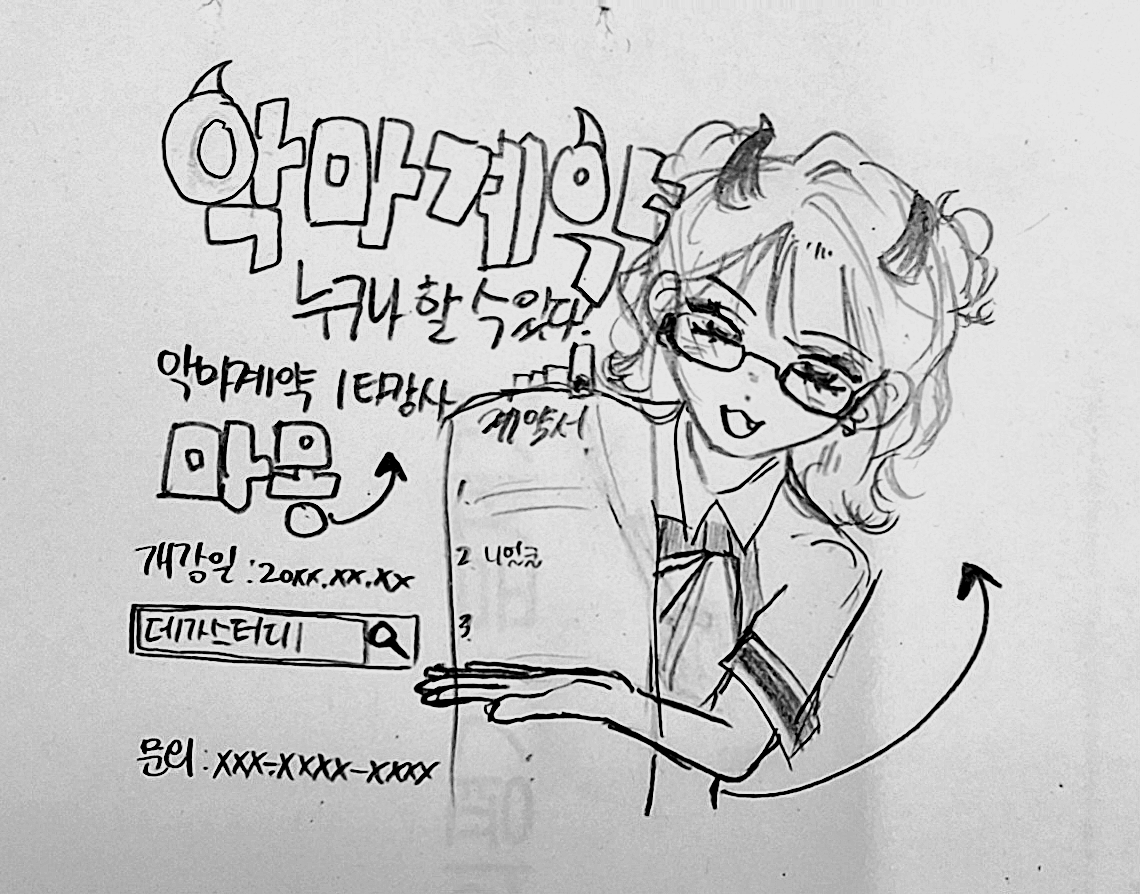 악마계약
누구나 할 수 있다!
악마계약 1타강사
마몽
개강일 : 20xx.xx.xx
데가스터디
문의 : xxx-xxxx-xxxx
계약서
1.
2 니인클
3